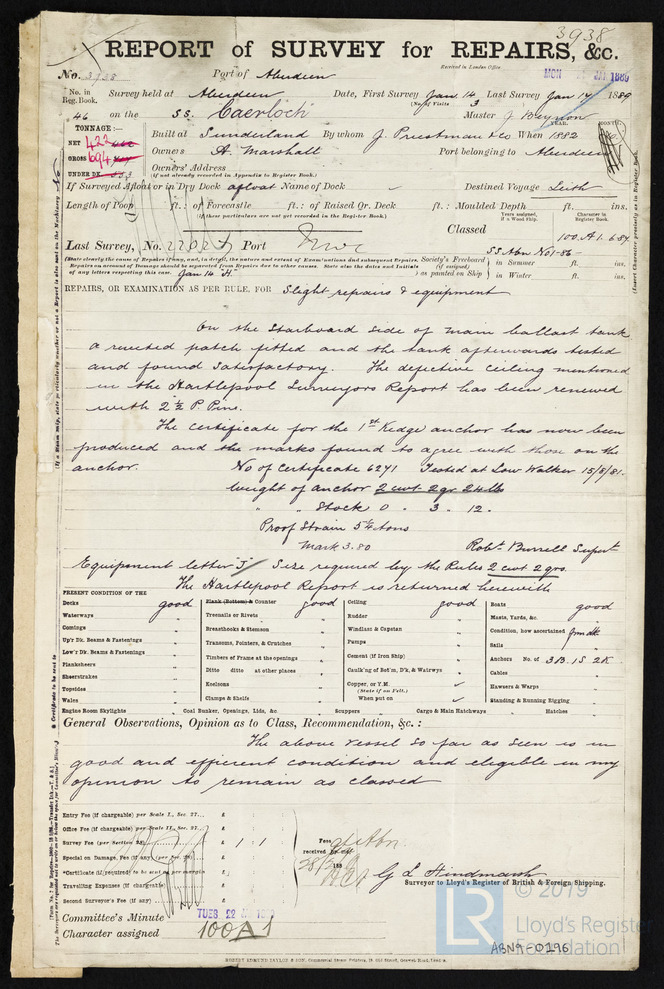 3938
REPORT of SURVEY for REPAIRS, &c.
Received in London Office
No. 3938 Port of Aberdeen MON 1889
No. in Reg. Book. Survey held at Aberdeen Date, First Survey Jan. 14 Last Survey Jan 14 1889
(No. of Visits 3
46 on the SS. Caerloch Master J Beynon
TONNAGE:— YEAR. MONTH.
NET 422
GROSS 694
UNDER DK. 653
Built at Sunderland By whom J. Priestman & Co When 1882
Owners A. Marshall Port belonging to Aberdeen
Owners' Address
(if not already recorded in Appendix to Register Book.)
If Surveyed Afloat or in Dry Dock afloat Name of Dock Destined Voyage Leith
Length of Poop ft.: of Forecastle ft.: of Raised Qr. Deck ft.: Moulded Depth ft. ins.
(if these particulars are not yet recorded in the Register Book.) Years assigned, if a Wood Ship. Character in Register Book.
Classed 100.A.1.6.87.
Last Survey, No. 22025 Port Nwc SS Abn No1-86-
(State clearly the cause of Repairs (if any, and, in detail, the nature and extent of Examinations and subsequent Repairs.
Repairs on account of Damage should be separated from Repairs due to other causes. State also the dates and Initials
of any letters respecting this case. Jan 14 H
Society's Freeboard (if assigned) as painted on Ship in Summer ft. ins.
in Winter ft. ins.
REPAIRS, OR EXAMINATION AS PER RULE, FOR Slight repairs & equipment
On the Starboard side of main ballast tank
a riveted patch fitted and the tank afterwards tested
and found satisfactory. The defective ceiling mentioned
in the Hartlepool Surveyors Report has been renewed
with 2½ P. Pine.
The certificate for the 1st Kedge anchor has now been
produced and the marks found to agree with those on the
anchor. No of Certificate 6271 Tested at Low Walker 15/8/81.
Weight of anchor 2 cwt 2 qr 24 lbs
" " Stock 0 . 3 . 12 .
Proof Strain 5¼ tons
Mark 3.80 Robt Burrell Supert
Equipment letter "J" Size required by the Rules 2 cwt 2 qrs.
The Hartlepool Report is returned herewith
PRESENT CONDITION OF THE
Decks good
Waterways "
Comings "
Up'r Dk. Beams & Fastenings "
Low'r Dk. Beams & Fastenings
Planksheers
Sheerstrakes "
Topsides "
Wales "
Plank (Bottom) & Counter good
Treenails or Rivets "
Breasthooks & Stemson
Transoms, Pointers, & Crutches
Timbers of Frame at the openings
Ditto ditto at other places
Keelsons
Clamps & Shelfs
Ceiling good
Rudder "
Windlass & Capstan "
Pumps "
Cement (if Iron Ship) "
Caulk'ng of Bot'm, D'k, & Watrwys "
Copper, or Y.M.
(State if on Felt.)
When put on
Boats good
Masts, Yards, &c. "
Condition, how ascertained from dk
Sails "
Anchors No. of 3B. 1S. 2K
Cables "
Hawsers & Warps "
Standing & Running Rigging "
Engine Room Skylights " Coal Bunker, Openings, Lids, &c. " Scuppers " Cargo & Main Hatchways " Hatches "
General Observations, Opinion as to Class, Recommendation, &c.:
The above vessel so far as seen is in
good and efficient condition and eligible in my
opinion to remain as classed
Entry Fee (if chargeable) per Scale I., Sec. 27... £
Office Fee (if chargeable) per Scale II., Sec. 27... £
Survey Fee (per Section 28) £ 1 : 1
Special on Damage, Fee (if any) (per Sec. 28) £
*Certificate (if required) to be sent as per margin £
Travelling Expenses (if chargeable) £
Second Surveyor's Fee (if any) £
Fees
received by me
188
G L Hindmarsh
Surveyor to Lloyd's Register of British & Foreign Shipping.
Committee's Minute TUES. 22
Character assigned 100A1
LR
© 2019
Lloyd's Register
Foundation
ABN9-0196